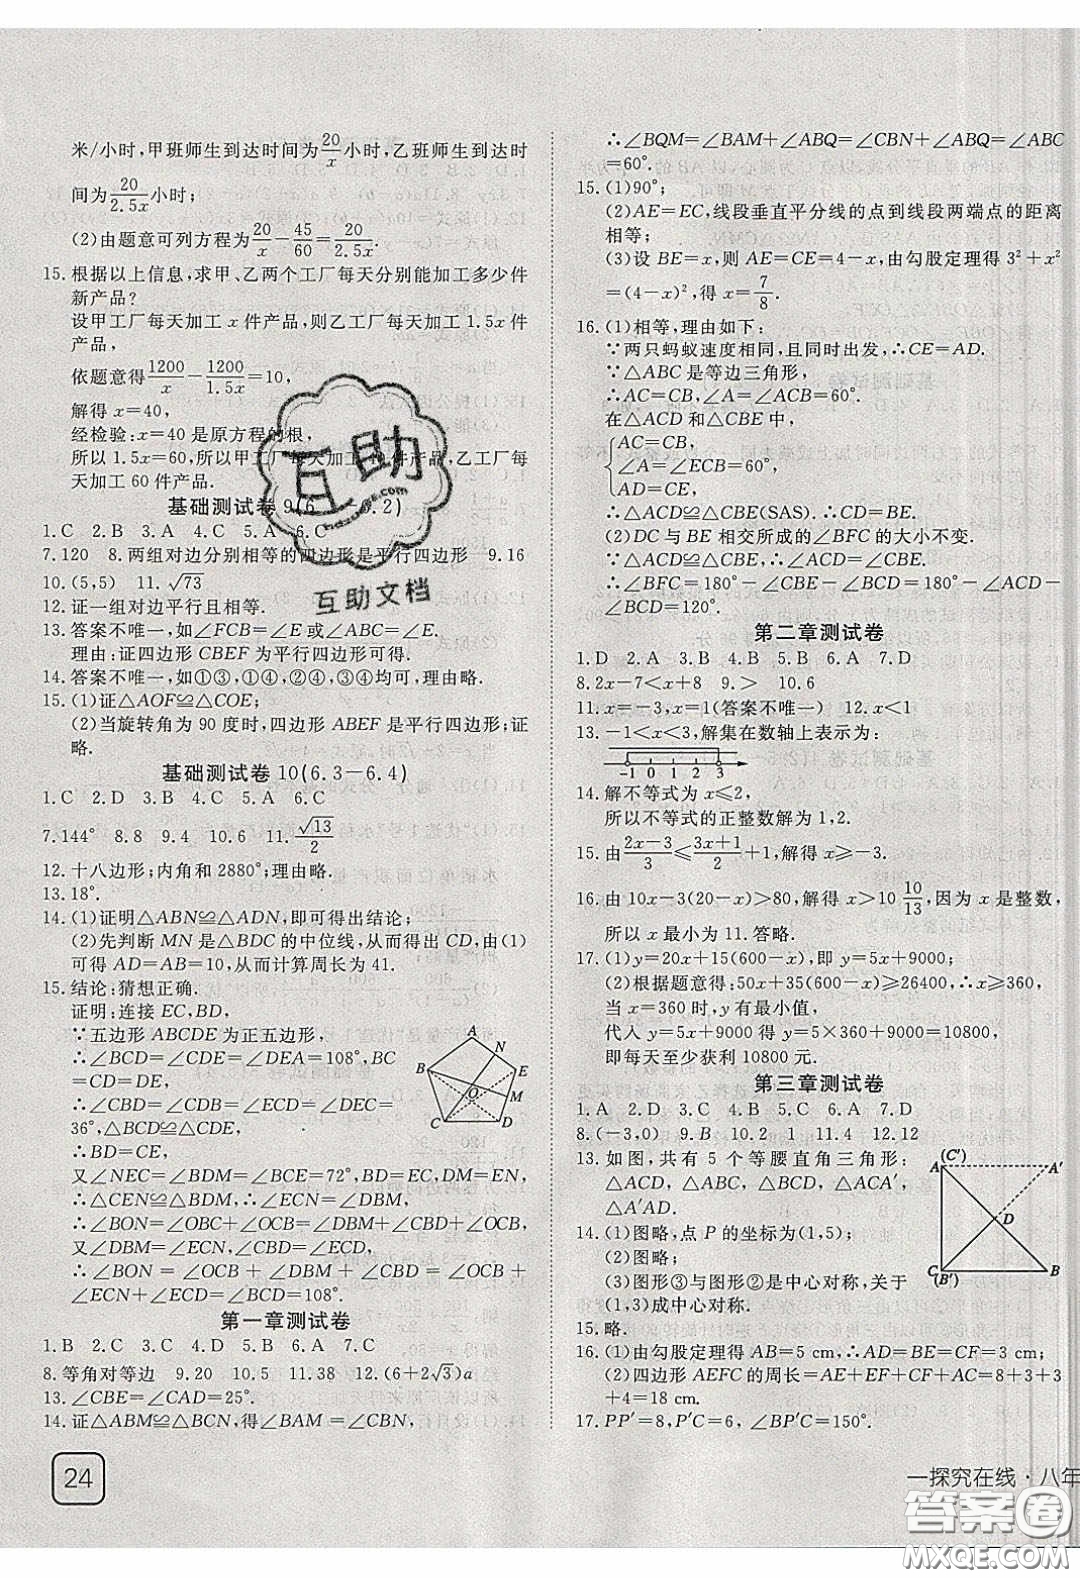 米/小时,甲班师生到达时间为20/x小时,乙班师生到达时
间为20/2.5x小时;
(2)由题意可列方程为20/x−45/60=20/2.5x.
15.根据以上信息,求甲、乙两个工厂每天分别能加工多少件
新产品?
设甲工厂每天加工 x 件产品,则乙工厂每天加工 1.5x 件
产品,
依题意得1200/x−1200/1.5x=10,
解得 x=40,
经检验:x=40 是原方程的根,
所以 1.5x=60,所以甲工厂每天加工 40件产品,乙工厂每
天加工 60 件产品.
基础测试卷 9(6. −6.2)
1.C 2.B 3.A 4.C 5.A 6.C
7.120 8.两组对边分别相等的四边形是平行四边形 9.16
10.(5,5) 11.√73
12.证一组对边平行且相等.
13.答案不唯一,如∠FCB=∠E 或∠ABC=∠E.
理由:证四边形 CBEF 为平行四边形可得.
14.答案不唯一,如①③,①④,②④,③④均可,理由略.
15.(1)证△AOF≌△COE;
(2)当旋转角为 90 度时,四边形 ABEF 是平行四边形;证
略.
基础测试卷 10(6.3−6.4)
1.C 2.D 3.B 4.C 5.A 6.C
7.144° 8.8 9.4 10.6 11.√13/2
12.十八边形;内角和 2880°;理由略.
13.18°.
14.(1)证明△ABN≌△ADN,即可得出结论;
(2)先判断 MN 是△BDC 的中位线,从而得出 CD,由(1)
可得 AD=AB=10,从而计算周长为 41.
15.结论:猜想正确.
证明:连接 EC,BD,
∵五边形 ABCDE 为正五边形,
∴∠BCD=∠CDE=∠DEA=108°,BC
=CD=DE,
∴∠CBD=∠CDB=∠ECD=∠DEC=
36°,△BCD≌△CDE,
∴BD=CE,
又∠NEC=∠BDM=∠BCE=72°,BD=EC,DM=EN,
∴△CEN≌△BDM,∴∠ECN=∠DBM,
∴∠BON=∠OBC+∠OCB=∠DBM+∠CBD+∠OCB,
又∠DBM=∠ECN,∠CBD=∠ECD,
∴∠BON=∠OCB+∠DBM+∠CBD=∠OCB+
∠ECN+∠ECD=∠BCD=108°.
第一章测试卷
1.B 2.C 3.D 4.B 5.A 6.A 7.C
8.等角对等边 9.20 10.5 11.38 12.(6+2√3)a
13.∠CBE=∠CAD=25°.
14.证△ABM≌△BCN,得∠BAM=∠CBN,
A
B
C
D
E
M
N
O
24
∴∠BQM=∠BAM+∠ABQ=∠CBN+∠ABQ=∠ABC
=60°.
15.(1)90°;
(2)AE=EC,线段垂直平分线的点到线段两端点的距离
相等;
(3)设 BE=x,则 AE=CE=4−x,由勾股定理得 3²+x²
=(4−x)²,得 x=7/8.
16.(1)相等,理由如下:
∵两只蚂蚁速度相同,且同时出发,∴CE=AD.
∵△ABC 是等边三角形,
∴AC=CB,∠A=∠ACB=60°.
在△ACD 和△CBE 中,
AC=CB,
∠A=∠ECB=60°,
AD=CE,
∴△ACD≌△CBE(SAS).∴CD=BE.
(2)DC 与 BE 相交所成的∠BFC 的大小不变.
∵△ACD≌△CBE,∴∠ACD=∠CBE.
∴∠BFC=180°−∠CBE−∠BCD=180°−∠ACD−
∠BCD=120°.
第二章测试卷
1.D 2.A 3.A 4.B 5.B 6.A 7.D
8.2x−7<x+8 9.> 10.6
11.x=−3,x=1(答案不唯一) 12.x<1
13.−1<x<3,解集在数轴上表示为:
−1 0 1 2 3
14.解不等式为 x≤2,
所以不等式的正整数解为 1,2.
15.由2x−3/3≤3x+1/2+1,解得 x≥−3.
16.由 10x−3(20−x)>80,解得 x>10 10/13,因为 x 是整数,
所以 x 最小为 11.答略.
17.(1)y=20x+15(600−x),即 y=5x+9000;
(2)根据题意得:50x+35(600−x)≥26400,∴x≥360,
当 x=360 时,y 有最小值,
代入 y=5x+9000 得 y=5×360+9000=10800,
即每天至少获利 10800 元.
第三章测试卷
1.A 2.D 3.C 4.B 5.C 6.A 7.D
8.(−3,0) 9.B 10.2 1 11.4 12.12
13.如图,共有 5 个等腰直角三角形:
△ACD,△ABD,△BCD,△ACA′,
△A′AD.
14.(1)图略,点 P 的坐标为(1,5);
(2)图略;
(3)图形③与图形②是中心对称,关于
(1,3)成中心对称.
15.略.
16.(1)由勾股定理得 AB=5 cm,∴AD=BE=CF=3 cm;
(2)四边形 AEFC 的周长=AE+EF+CF+AC=8+3+3
+4=18 cm.
17.PP′=8,P′C=6,∠BP′C=150°.
(C′)
A
A′
D
C
(B′)
B
一探究在线·八年
互助
互助文档
答案圈
MXQE.COM